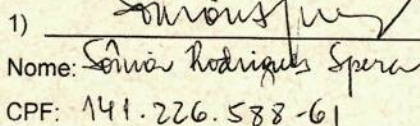 1)
Nome: Sônia Rodrigues Spera
CPF: 141.226.588-61